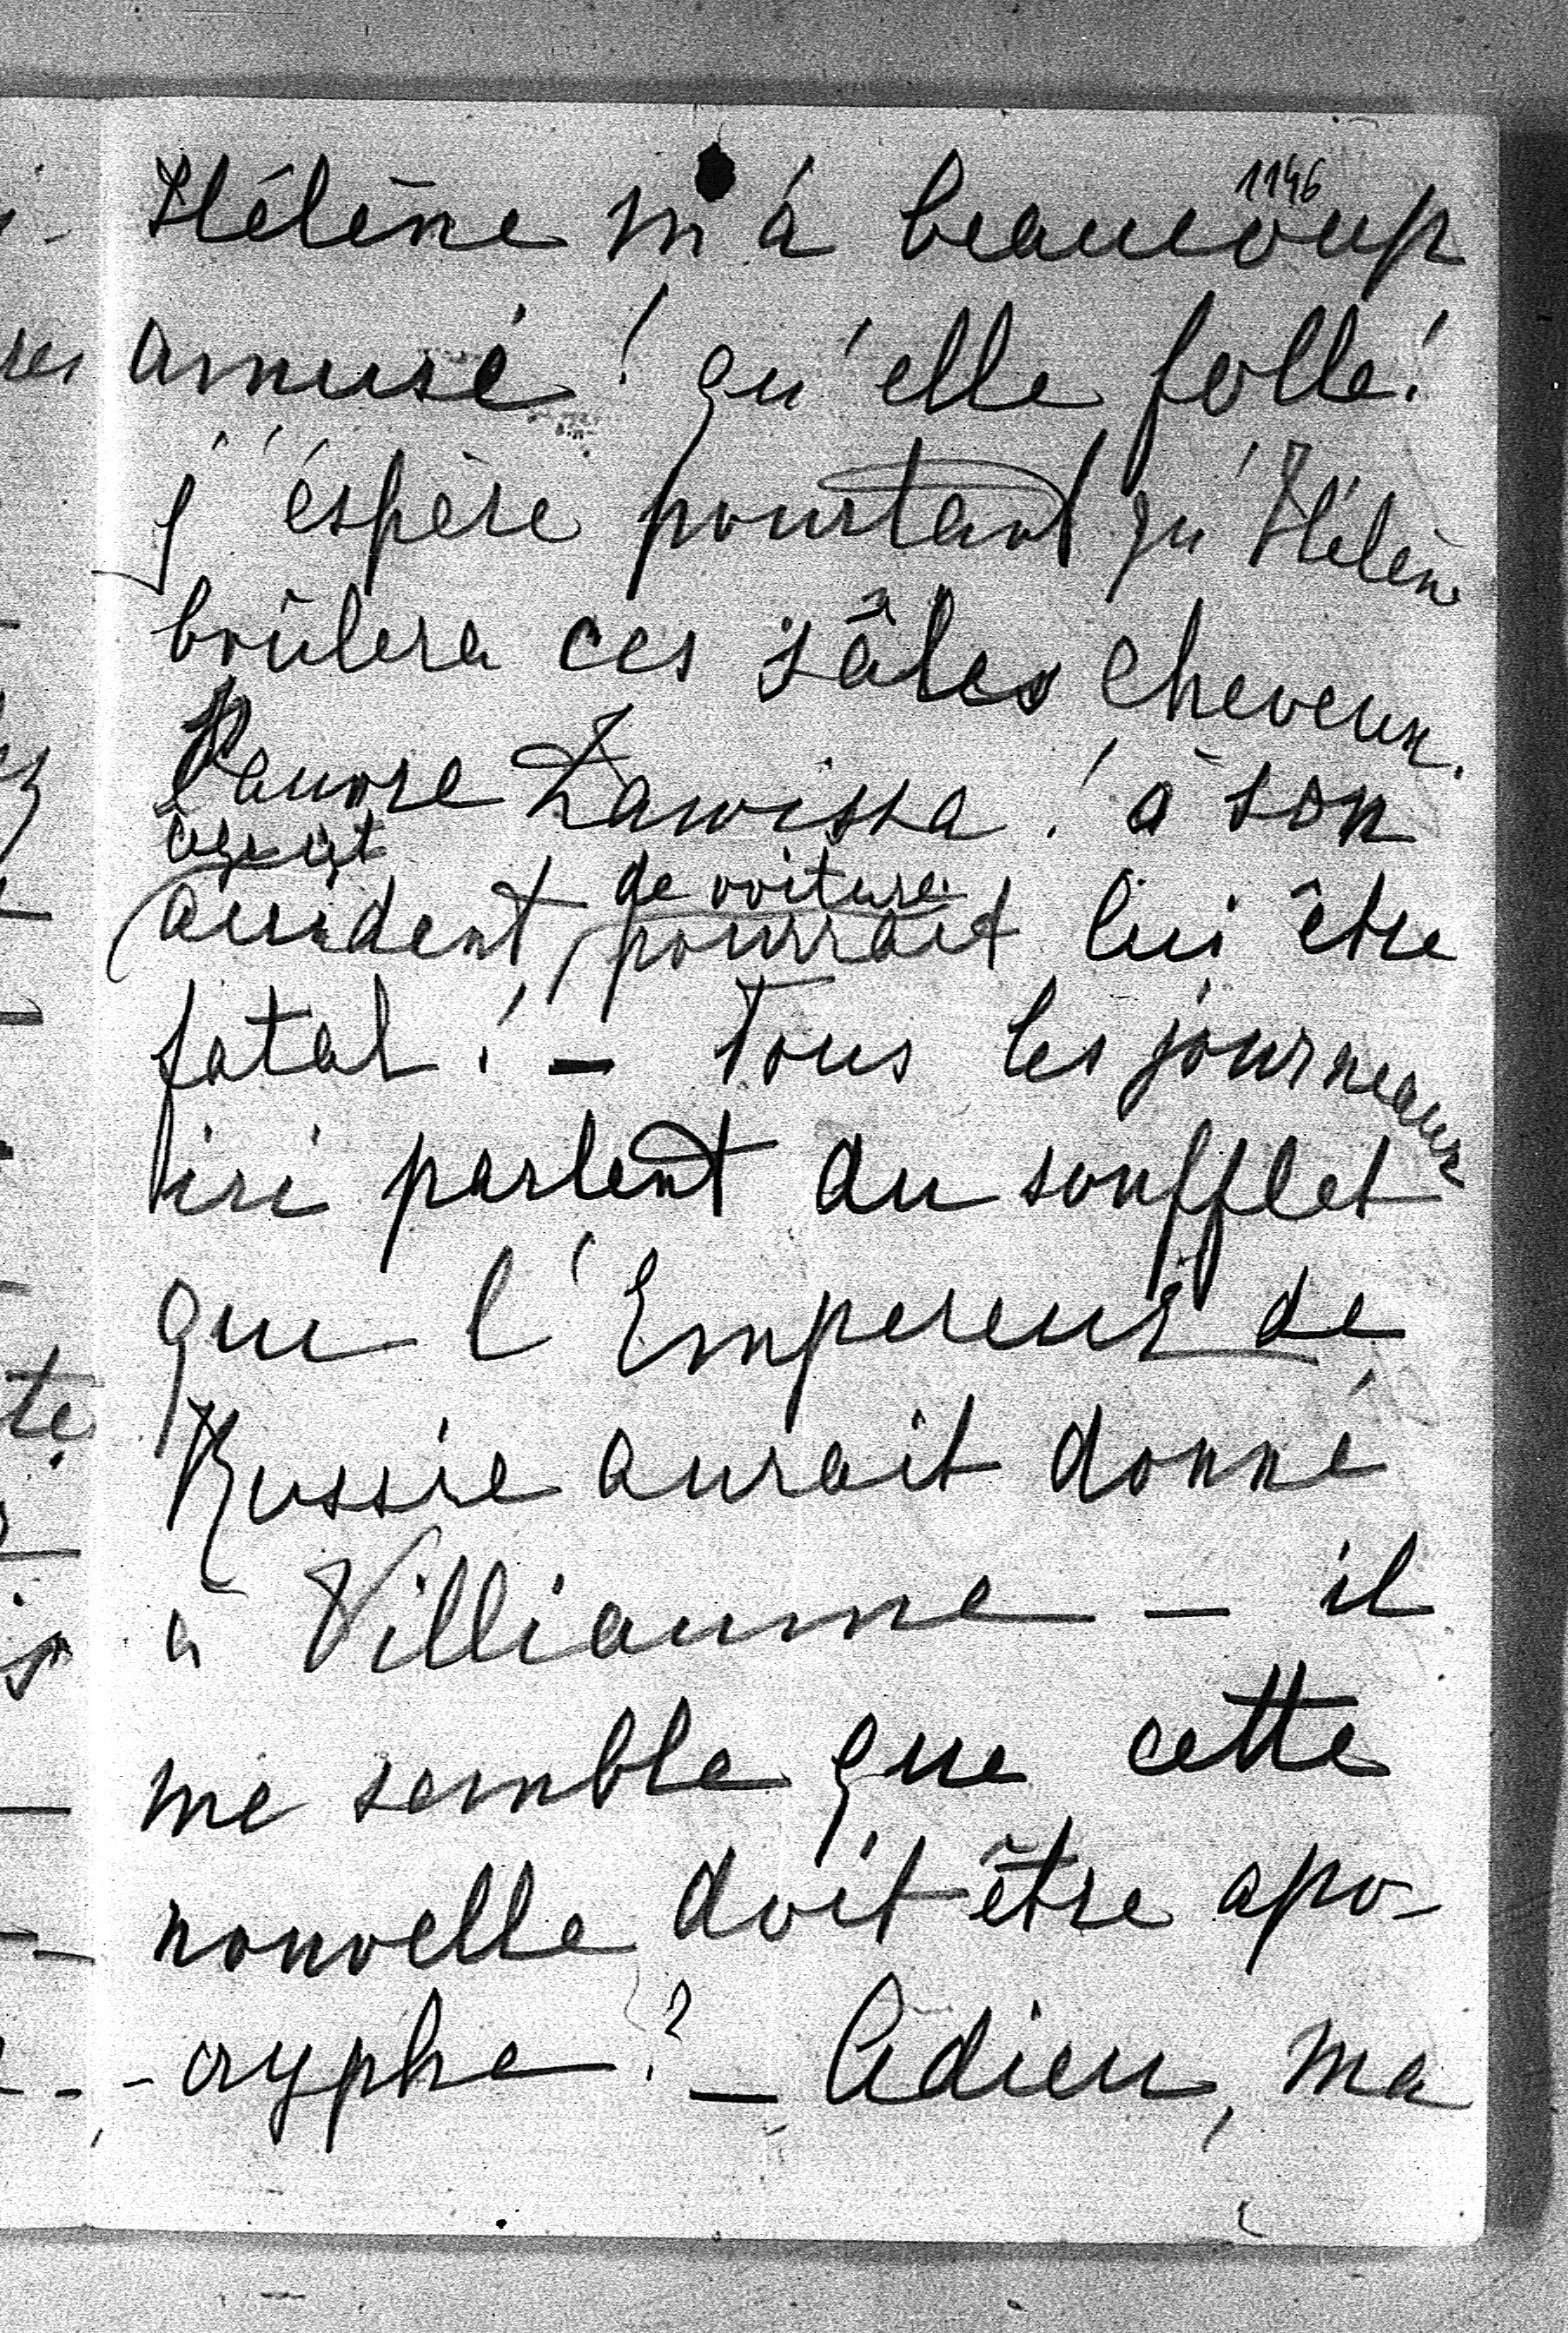 1146
Hélène m'a beaucoup
amusé! qu'elle folle!
j'éspère pourtant qu'Hélène
brûlera ces sâles cheveux.
Pauvre Zawissa! à son
age cet
accident de voiture pourrait lui être
fatal! — Tous les journeaux
ici parlent du soufflet
que l'Empereur de
Russie aurait donné
à Villiaume — il
me semble que cette
nouvelle doit être apo-
-cryphe? — Adieu, ma